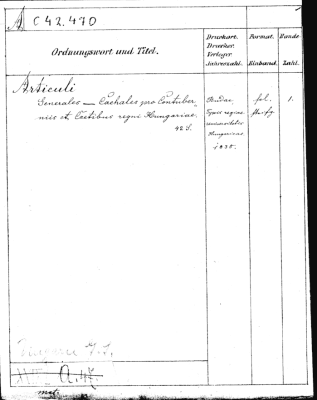 A C 42.470
Ordnungswort und Titel.
Druckort. Drucker. Verleger Jahreszahl.
Format. Einband.
Bände. Zahl.
Articuli
Generales — Cechales pro Contuber-
niis et Coetibus regni Hungariae.
42 S.
Budae,
Typis regiae
universitatis
Hungaricae.
fol.
1.
A.47.